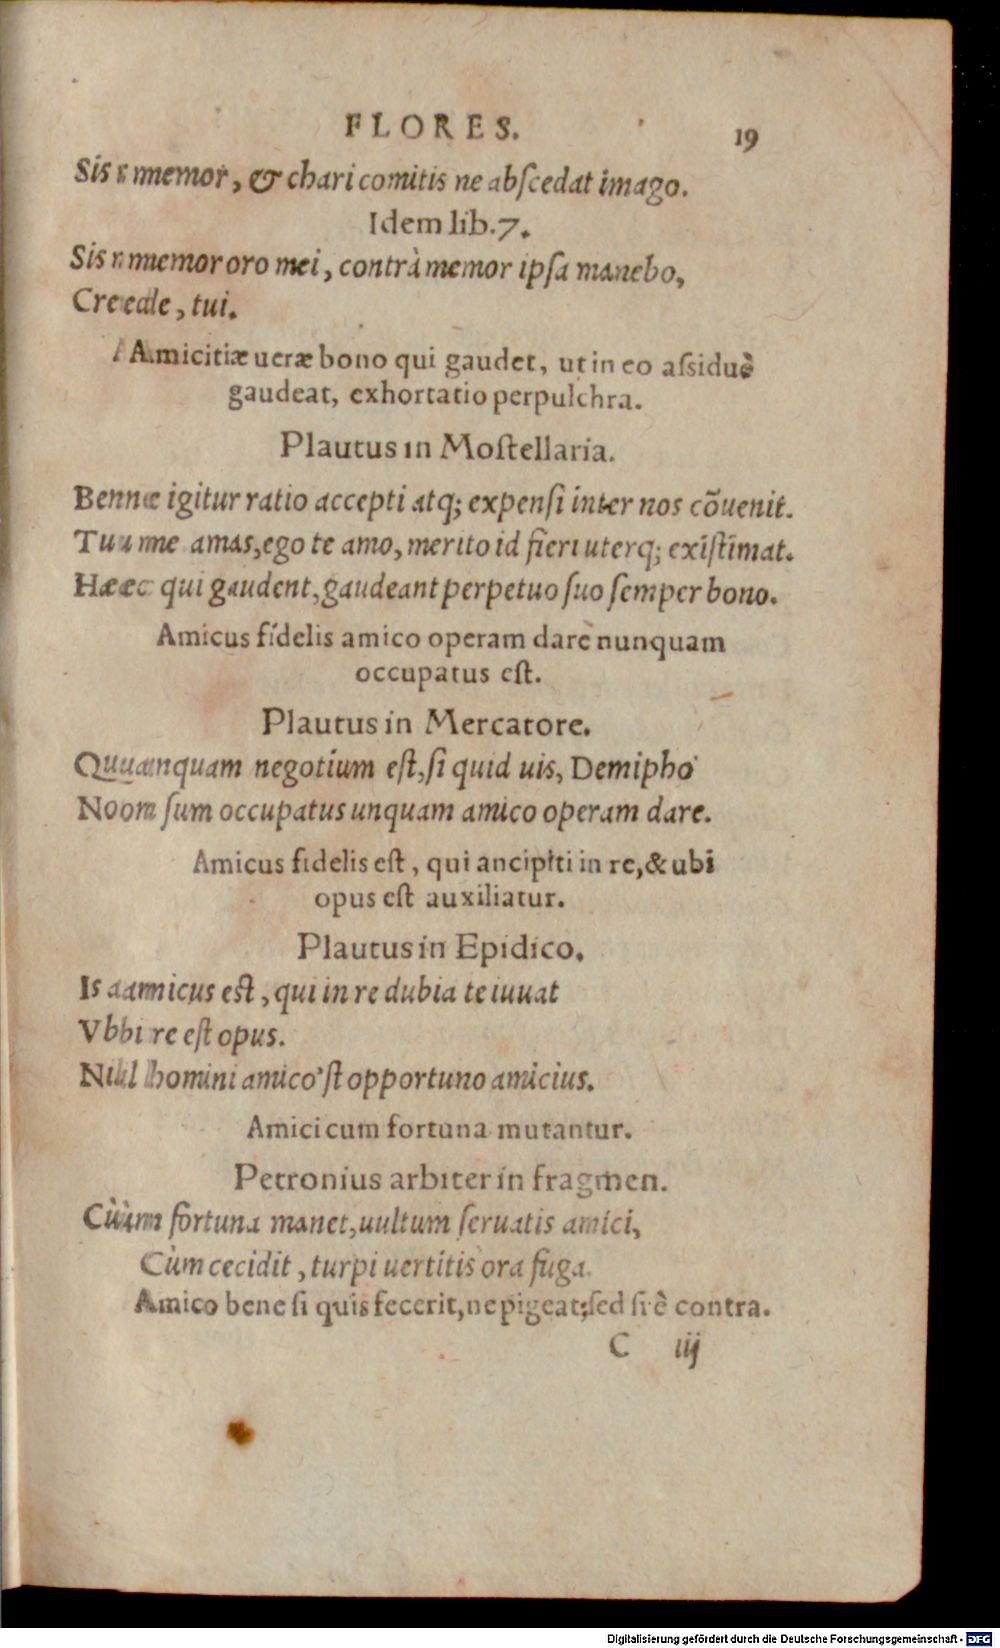 FLORES. 19
Sis memor, & chari comitis ne abſcedat imago.
Idem lib.7.
Sis memor oro mei, contrà memor ipſa manebo,
Crede, tui.
Amicitiæ ueræ bono qui gaudet, ut in eo aſsiduè
gaudeat, exhortatio perpulchra.
Plautus in Moſtellaria.
Bene igitur ratio accepti atq; expenſi inter nos cõuenit.
Tu me amas, ego te amo, merito id fieri uterq; exiſtimat.
Hæc qui gaudent, gaudeant perpetuo ſuo ſemper bono.
Amicus fidelis amico operam dare nunquam
occupatus eſt.
Plautus in Mercatore.
Quanquam negotium eſt, ſi quid uis, Demipho
Nom ſum occupatus unquam amico operam dare.
Amicus fidelis eſt, qui ancipiti in re, & ubi
opus eſt auxiliatur.
Plautus in Epidico.
Is amicus eſt, qui in re dubia te iuuat
Vbi re eſt opus.
Nihil homini amico'ſt opportuno amicius.
Amici cum fortuna mutantur.
Petronius arbiter in fragmen.
Cùm fortuna manet, uultum ſeruatis amici,
Cùm cecidit, turpi uertitis ora fuga.
Amico bene ſi quis fecerit, ne pigeat; ſed ſi è contra.
C iij
Digitalisierung gefördert durch die Deutsche Forschungsgemeinschaft - DFG